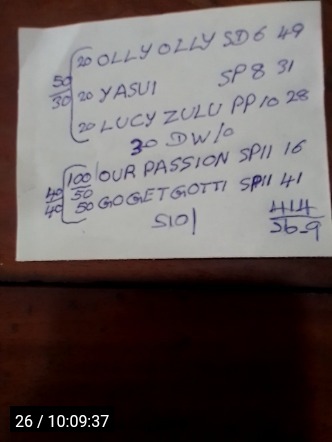 50/30 20 OLLY OLLY SD6 49
20 YASUI SP8 31
20 LUCY ZULU PP10 28
30 DW/0
40/40 100/50 OUR PASSION SP11 16
50 GOGETGOTTI SP11 41
S10/
414
56-9
26 / 10:09:37